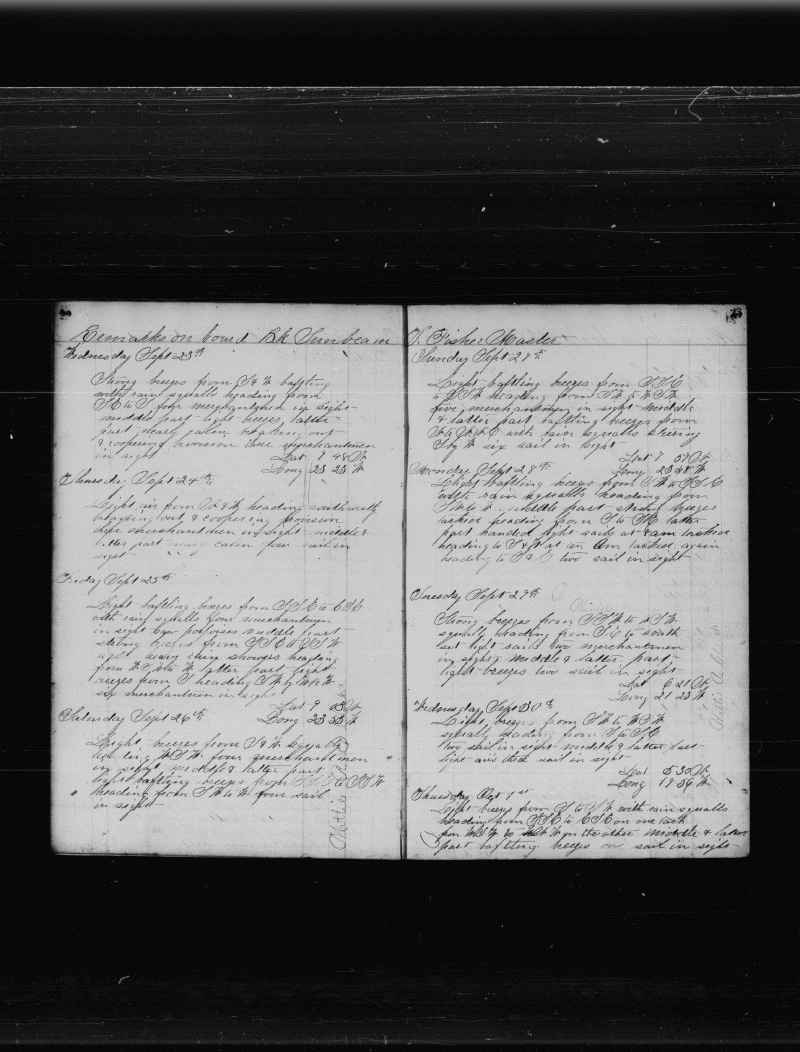 Remarks on board Bk Sunbeam
Wednesday Sept 23th
Strong breezes from S & W baffling
with rain squalls heading from
SE to S four merchantmen in sight
middle part light breezes latter
part nearly calm breaking out
& coopering provision three merchantmen
in sight
Lat 9 48 N
Long 25 25 W
Thursday Sept 24th
Light air from S & W heading southerly
breaking out & coopering provision
five merchantmen in sight middle &
latter part calm four sail in
sight
Friday Sept 25th
Light baffling breezes from SSE to ESE
with rain squalls four merchantmen
in sight saw porpoises middle part
strong breezes from SSE to SSW
with heavy rain showers heading
from latter part light
breezes from S heading
six merchantmen in sight
Lat 9 03 N
Long 23 53 W
Saturday Sept 26th
Light breezes from S & W squally
heading WSW four merchantmen
in sight middle & latter part
light baffling breezes from to SSW
heading from to W four sail
in sight
T. Fisher Master
Sunday Sept 27th
Light baffling breezes from SSE
to SSW heading from SW to WSW
five merchantmen in sight middle
& latter part baffling breezes from
with rain squalls steering
S by W six sail in sight
Lat 7 57 N
Long 23 48 W
Monday Sept 28th
Light baffling breezes from SW to SSE
with rain squalls heading from
middle part strong breezes
tacked heading from S to SE latter
part handed light sails at 8 am tacked
heading to at 11 Am tacked again
heading to two sail in sight
Tuesday Sept 29th
Strong breezes from SSW to
squally heading from SE to south
set light sails two merchantmen
in sight middle & latter part
light breezes two sail in sight
Lat 6 21 N
Long 21 23 W
Wednesday Sept 30th
Light breezes from SW to WSW
squally heading from S to SE
two sail in sight middle & latter part
light airs three sail in sight
Lat 5 30 N
Long 19 56 W
Thursday Oct 1st
Light breezes from S to SW with rain squalls
heading from SSE to ESE on one tack
from WSW to on the other middle & latter
part baffling breezes one sail in sight